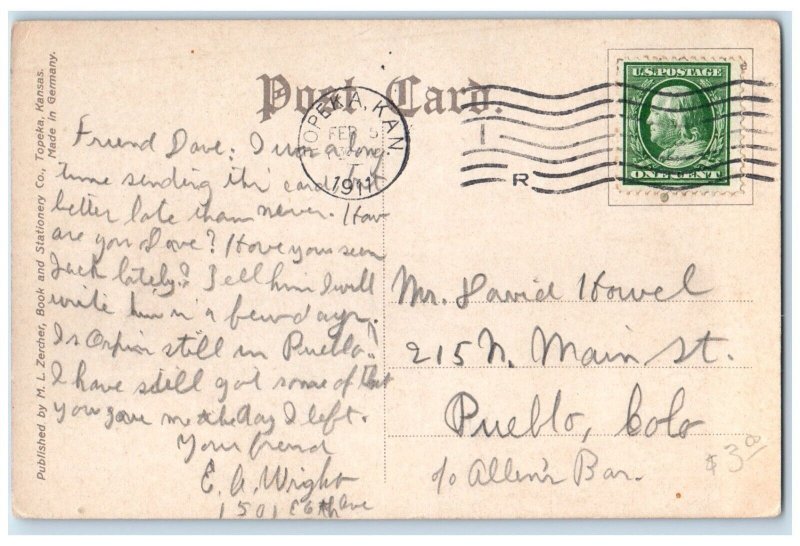 Post Card.
TOPEKA, KAN.
FEB 5
1911
R
U.S. POSTAGE
ONE CENT
Published by M. L. Zercher, Book and Stationery Co., Topeka, Kansas.
Made in Germany.
Friend Dave: I was a long
time sending this card but
better late than never. How
are you Dave? Have you seen
Jack lately? Tell him I will
write him in a few days.
Is still in Pueblo.
I have still got some of that
you gave me the day I left.
Your friend
E. A. Wright
1501 E 6th Ave
Mr. David Howel
215 N. Main St.
Pueblo, Colo
c/o Allen's Bar.
$3.00